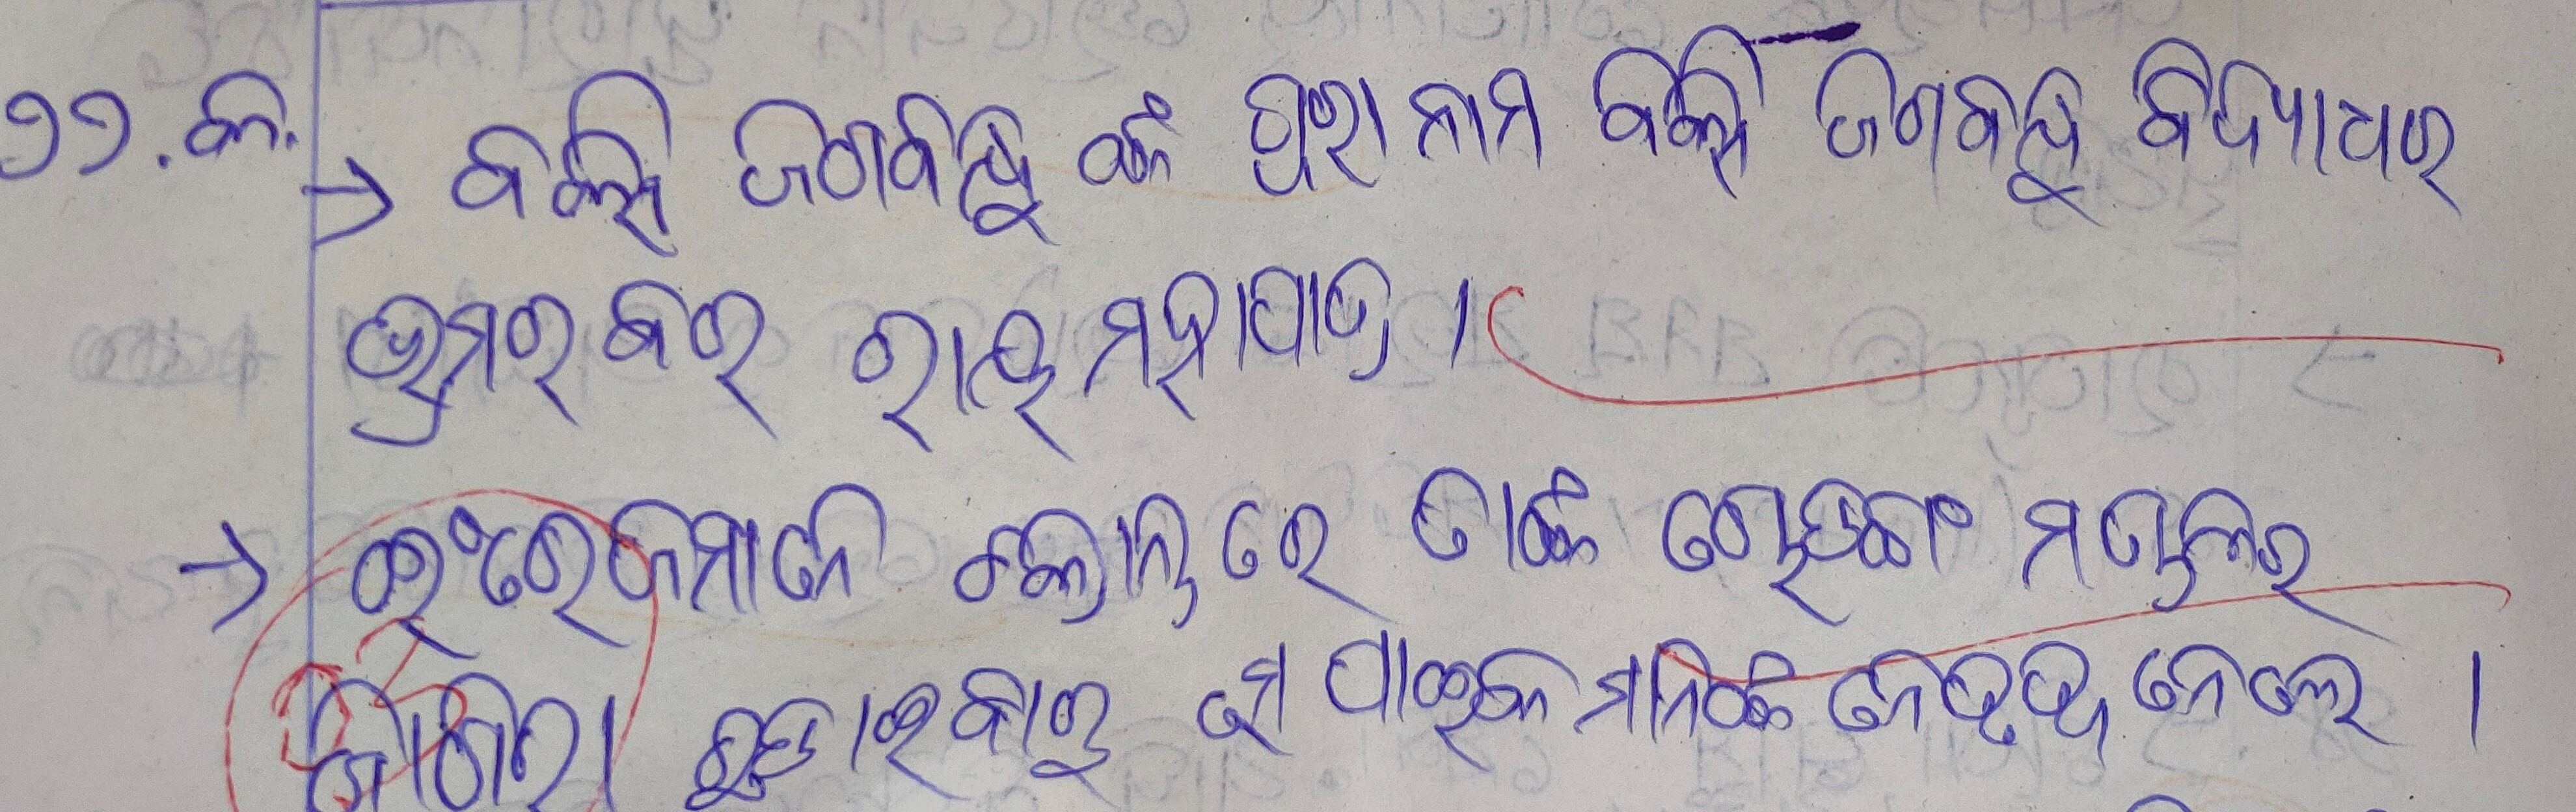 ୨୨.କ.
→ ବକ୍ସି ଜଗବନ୍ଧୁ ଙ୍କ ପୁରା ନାମ ବକ୍ସି ଜଗବନ୍ଧୁ ବିଦ୍ୟାଧର
ଭ୍ରମରବର ରାୟ ମହାପାତ୍ର ।
→ ଇଂରେଜମାନେ ଛଳାନ୍ତରେ ତାଙ୍କ ରୋଡଙ୍ଗ ମଣ୍ଡଳର
ଜାଗିରୀ ଛଡାଇବାରୁ ସେ ପାଇକମାନଙ୍କ ନେତୃତ୍ୱ ନେଲେ ।